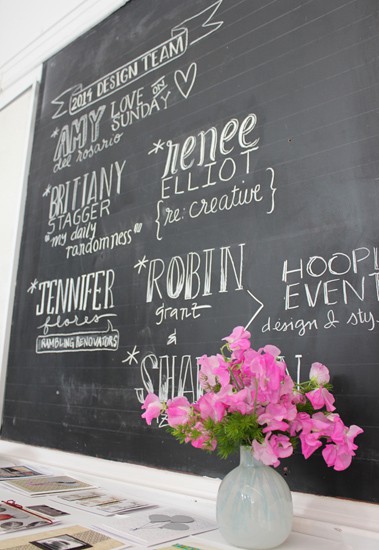 2014 DESIGN TEAM
*AMY LOVE ON SUNDAY
del rosario
*BRITTANY
STAGGER
"my daily
randomness"
*JENNIFER
flores
RAMBLING RENOVATORS
*renee
ELLIOT
{re: creative}
*ROBIN
grant
&
*
HOOPL
EVENT
design & sty